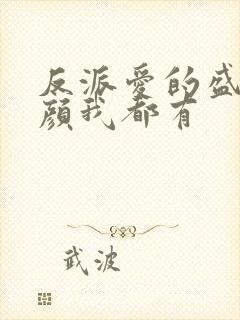 反派爱的盛
颜我都有
武波